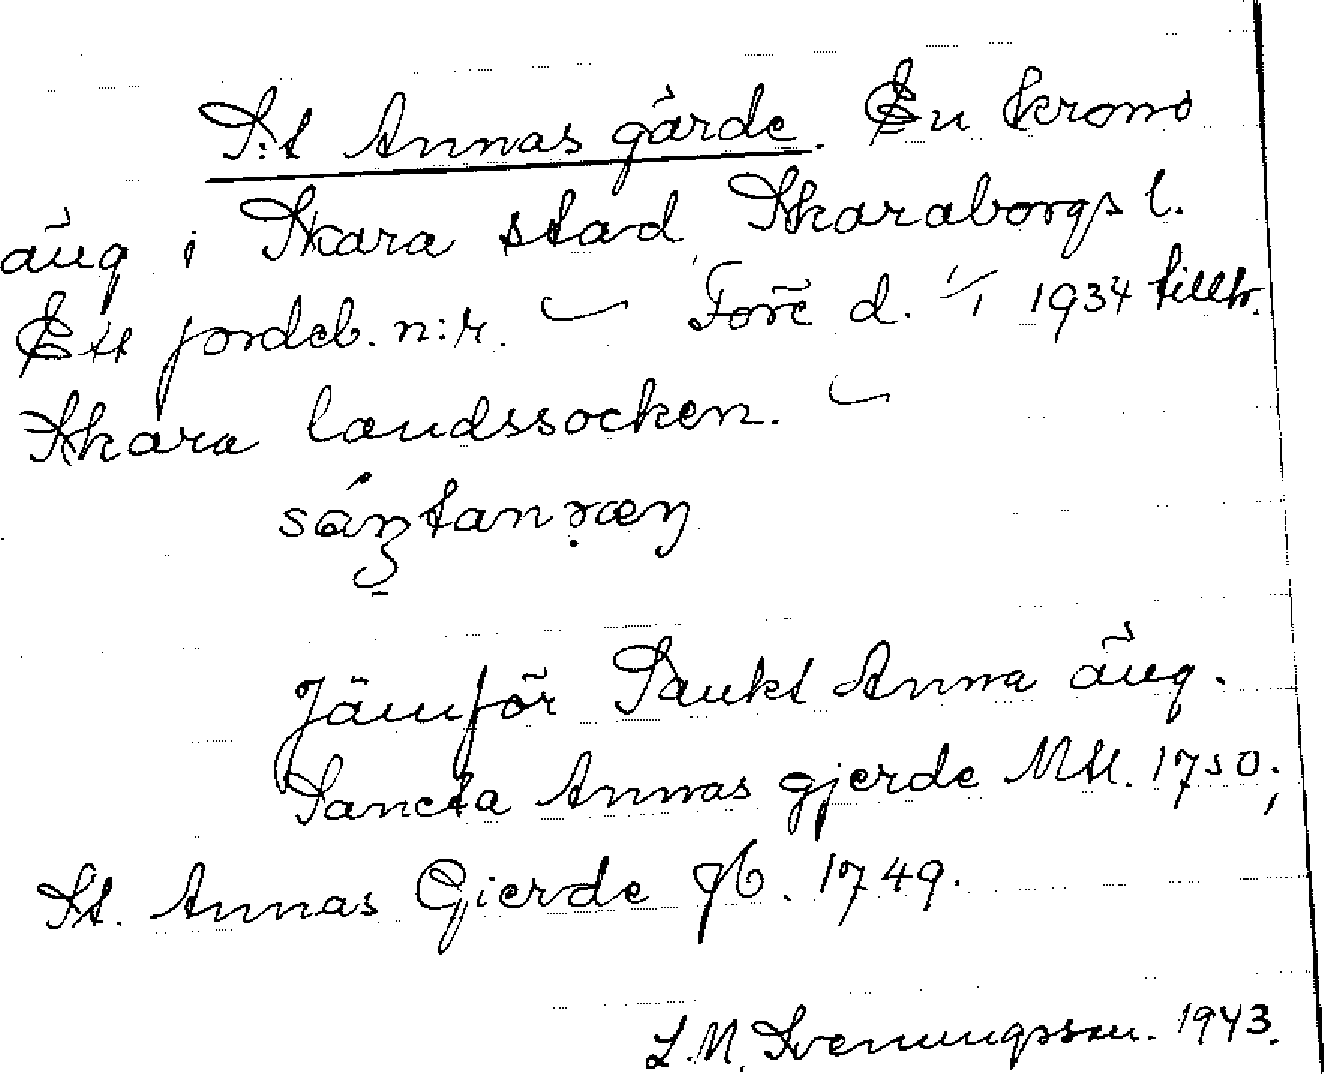 S:t Annas gärde. En krono
äng i Skara stad, Skaraborgs l.
Ett jordeb. n:r. Före d. 1/1 1934 tillh.
Skara landssocken.
Jämför Sankt Anna äng.
Sancta Annas gjerde Mtl. 1750;
St. Annas Gierde gb. 1749.
L. M. Svenungsson. 1943.